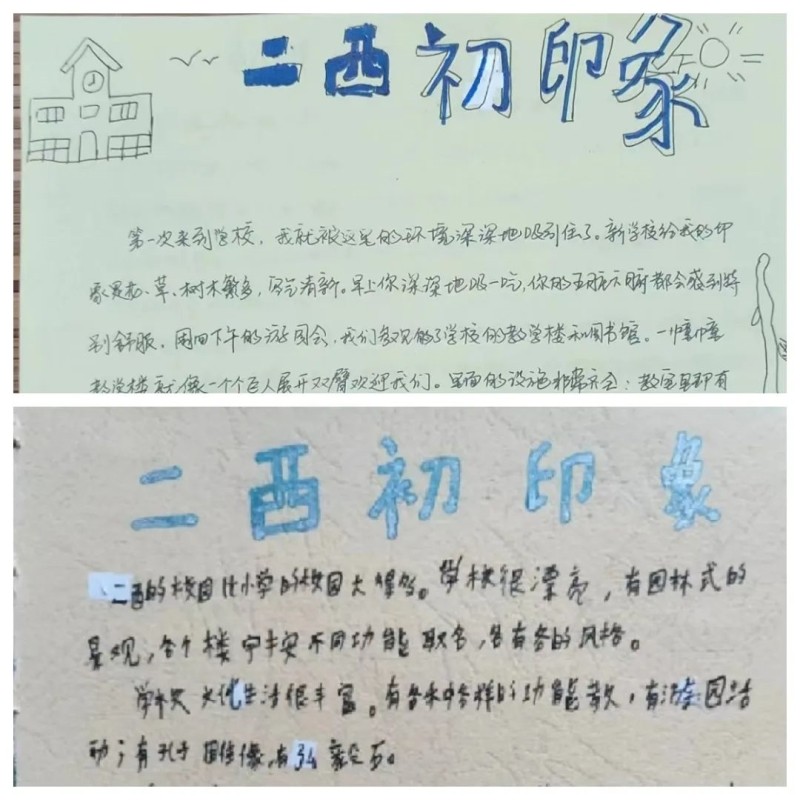 二西初印象
第一次来到学校，我就被这里的环境深深地吸引住了。新学校给我的印
象是花、草、树木繁多，空气清新。早上你深深地吸一吃，你的五脏六腑都会感到特
别舒服。用四下午的游园会，我们参观的了学校的教学楼和图书馆。一幢幢
教学楼就像一个个巨人展开双臂欢迎我们。里面的设施非常齐全：教室里都有
二西初印象
二西的校园比小学的校园大得多。学校很漂亮，有园林式的
景观，各个楼宇按不同功能取名，各有各的风格。
学校文化生活很丰富。有各种各样的功能教，有游园活
动；有孔子雕像，有弘毅石。